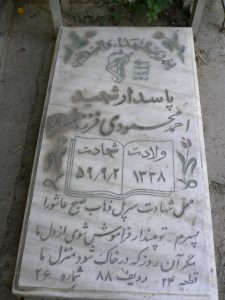 پاسدار شهید
احمد محمودی فرزند
ولادت شهادت
۱۳۳۸ ۵۹/۹/۲
محل شهادت سرپل ذهاب صبح عاشورا
پسرم تو مپندار فراموش شوی از دل ما
مگر آن روز که در خاک شود منزل ما
قطعه ۲۴ ردیف ۸۸ شماره ۲۶